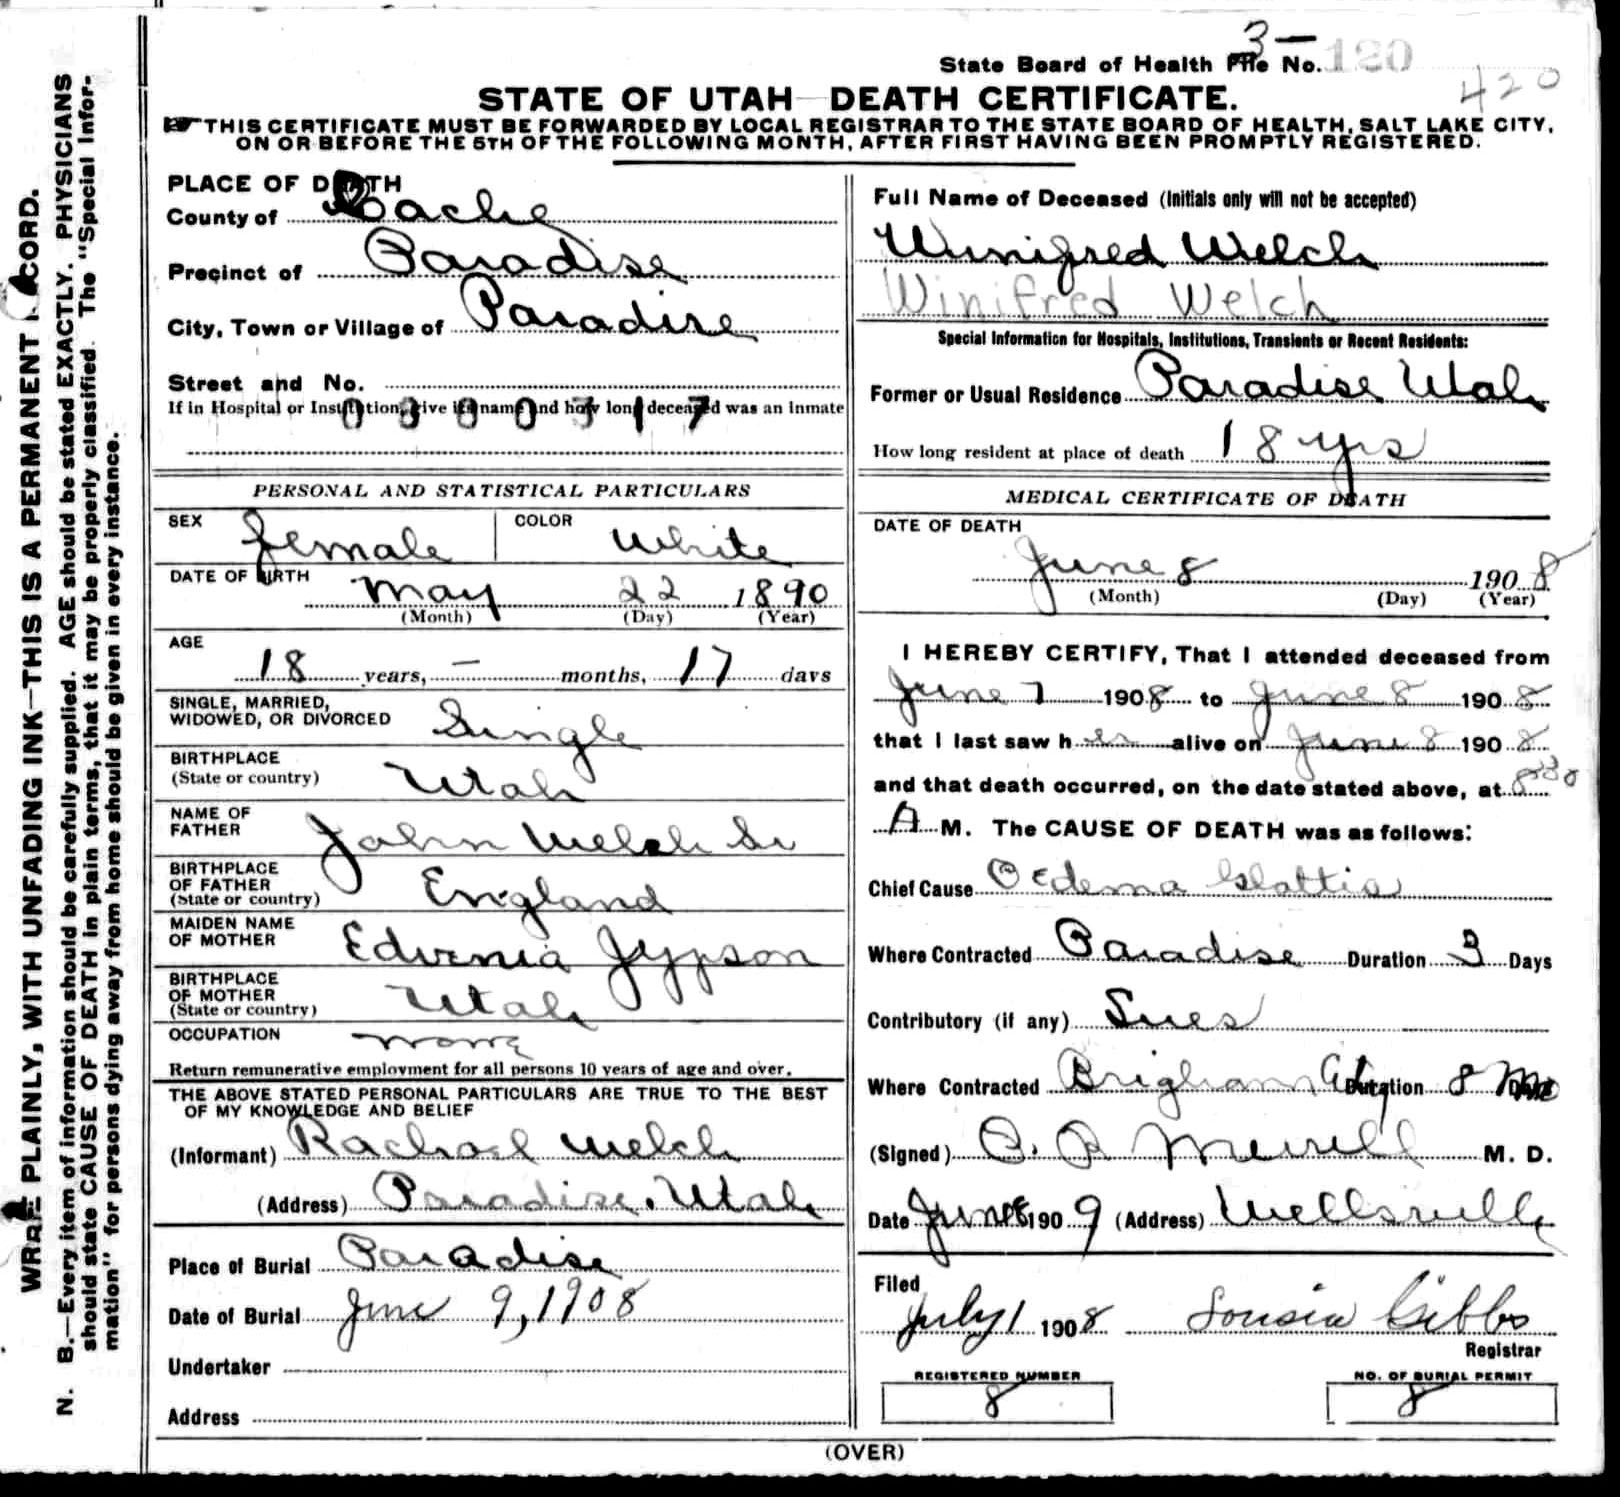 3—
State Board of Health File No. 120
420
STATE OF UTAH—DEATH CERTIFICATE.
THIS CERTIFICATE MUST BE FORWARDED BY LOCAL REGISTRAR TO THE STATE BOARD OF HEALTH, SALT LAKE CITY,
ON OR BEFORE THE 5TH OF THE FOLLOWING MONTH, AFTER FIRST HAVING BEEN PROMPTLY REGISTERED.
PLACE OF DEATH
County of Cache
Precinct of Paradise
City, Town or Village of Paradise
Street and No.
If in Hospital or Institution, give its name and how long deceased was an inmate
0300317
PERSONAL AND STATISTICAL PARTICULARS
SEX female COLOR White
DATE OF BIRTH May 22 1890
(Month) (Day) (Year)
AGE
18 years, — months, 17 days
SINGLE, MARRIED,
WIDOWED, OR DIVORCED Single
BIRTHPLACE
(State or country) Utah
NAME OF
FATHER John Welch Sr
BIRTHPLACE
OF FATHER
(State or country) England
MAIDEN NAME
OF MOTHER Edvenia Jyppson
BIRTHPLACE
OF MOTHER
(State or country) Utah
OCCUPATION none
Return remunerative employment for all persons 10 years of age and over.
THE ABOVE STATED PERSONAL PARTICULARS ARE TRUE TO THE BEST
OF MY KNOWLEDGE AND BELIEF
(Informant) Rachael Welch
(Address) Paradise, Utah
Place of Burial Paradise
Date of Burial June 9, 1908
Undertaker
Address
Full Name of Deceased (Initials only will not be accepted)
Winifred Welch
Winifred Welch
Special Information for Hospitals, Institutions, Transients or Recent Residents:
Former or Usual Residence Paradise Utah
How long resident at place of death 18 yrs
MEDICAL CERTIFICATE OF DEATH
DATE OF DEATH
June 8 1908
(Month) (Day) (Year)
I HEREBY CERTIFY, That I attended deceased from
June 7 1908 to June 8 1908
that I last saw her alive on June 8 1908
and that death occurred, on the date stated above, at 8 30
A M. The CAUSE OF DEATH was as follows:
Chief Cause Oedema Glottis
Where Contracted Paradise Duration 3 Days
Contributory (if any) Lues
Where Contracted Brigham City Duration 8 Mo
(Signed) Merrill M. D.
Date June 8 1909 (Address) Wellsville
Filed
July 1 1908 Lousia Gibbs
Registrar
REGISTERED NUMBER
8
NO. OF BURIAL PERMIT
8
(OVER)
WRITE PLAINLY, WITH UNFADING INK—THIS IS A PERMANENT RECORD.
N. B.—Every item of information should be carefully supplied. AGE should be stated EXACTLY. PHYSICIANS
should state CAUSE OF DEATH in plain terms, that it may be properly classified. The "Special Infor-
mation" for persons dying away from home should be given in every instance.